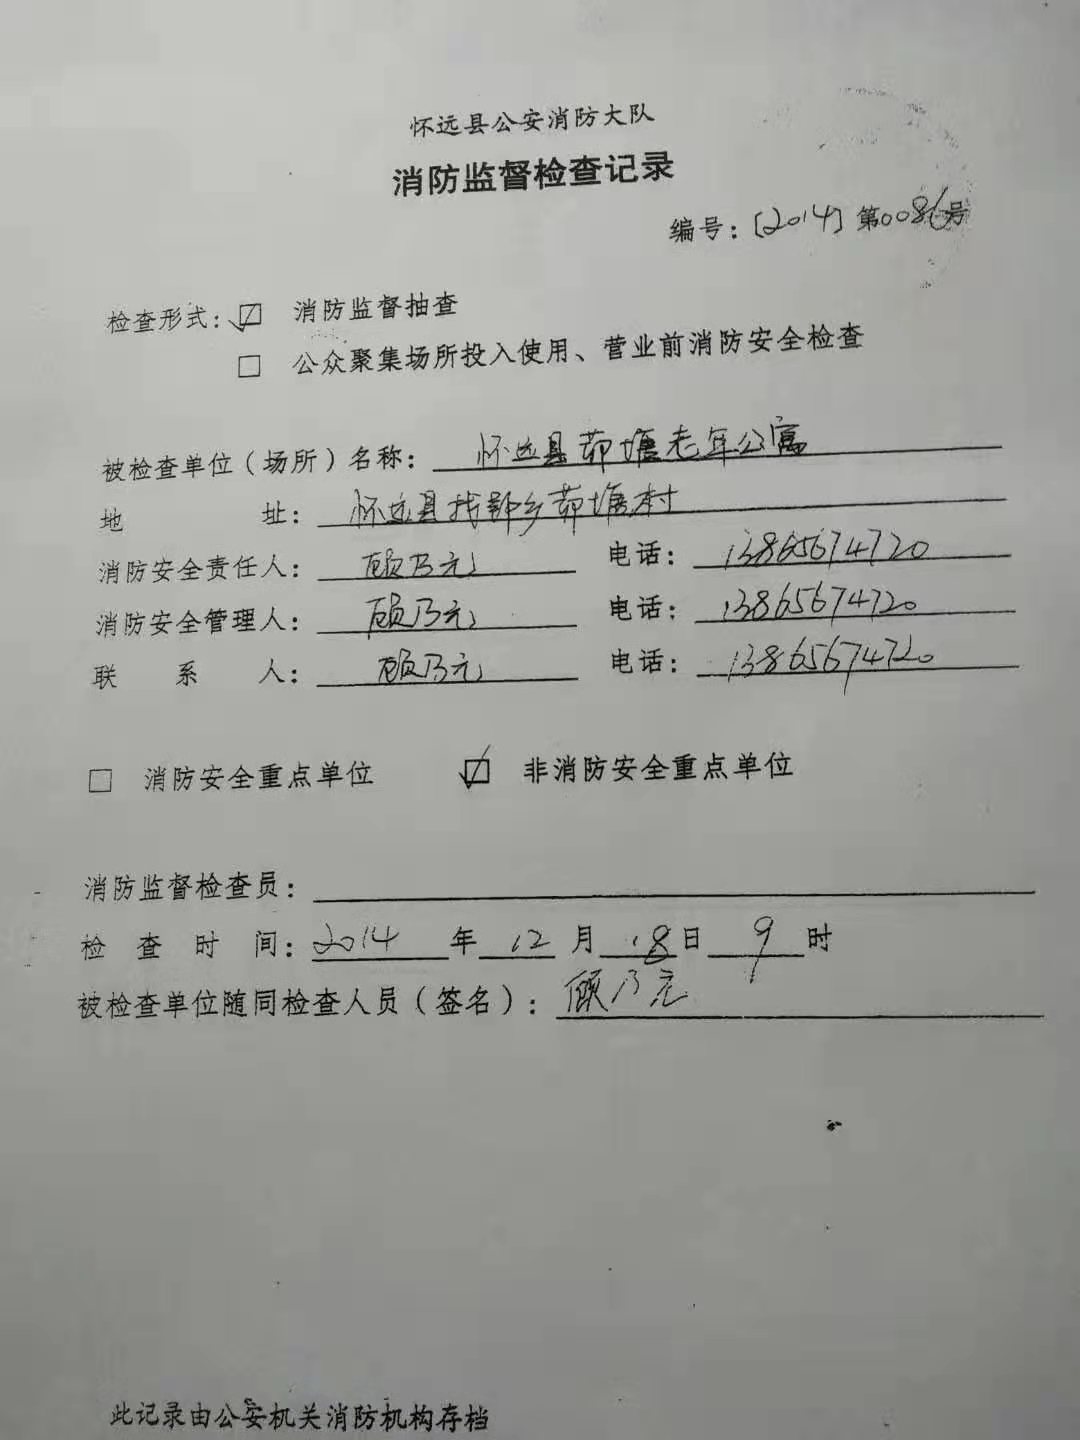 怀远县公安消防大队
消防监督检查记录
编号：[2014]第0086号
检查形式：☑ 消防监督抽查
□ 公众聚集场所投入使用、营业前消防安全检查
被检查单位（场所）名称：怀远县茆塘老年公寓
地 址：怀远县找郢乡茆塘村
消防安全责任人：顾乃元 电话：13865674720
消防安全管理人：顾乃元 电话：13865674720
联 系 人：顾乃元 电话：13865674720
□ 消防安全重点单位 ☑ 非消防安全重点单位
消防监督检查员：
检 查 时 间：2014 年 12 月 18 日 9 时
被检查单位随同检查人员（签名）：顾乃元
此记录由公安机关消防机构存档